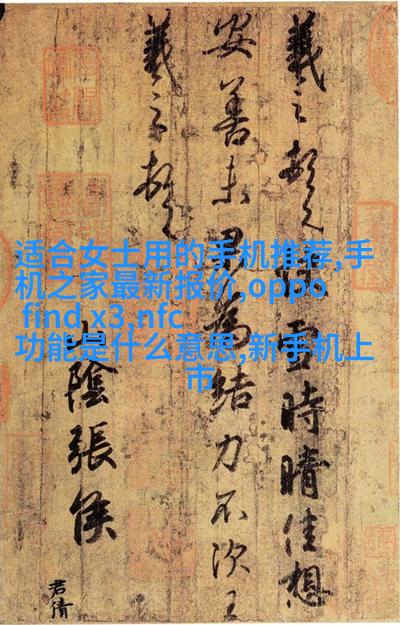 羲之頓首快雪時晴佳想
安善未果為結力不次王
羲之頓首
山陰張侯
君倩
适合女士用的手机推荐,手
机之家最新报价,oppo
find x3,nfc
功能是什么意思,新手机上
市